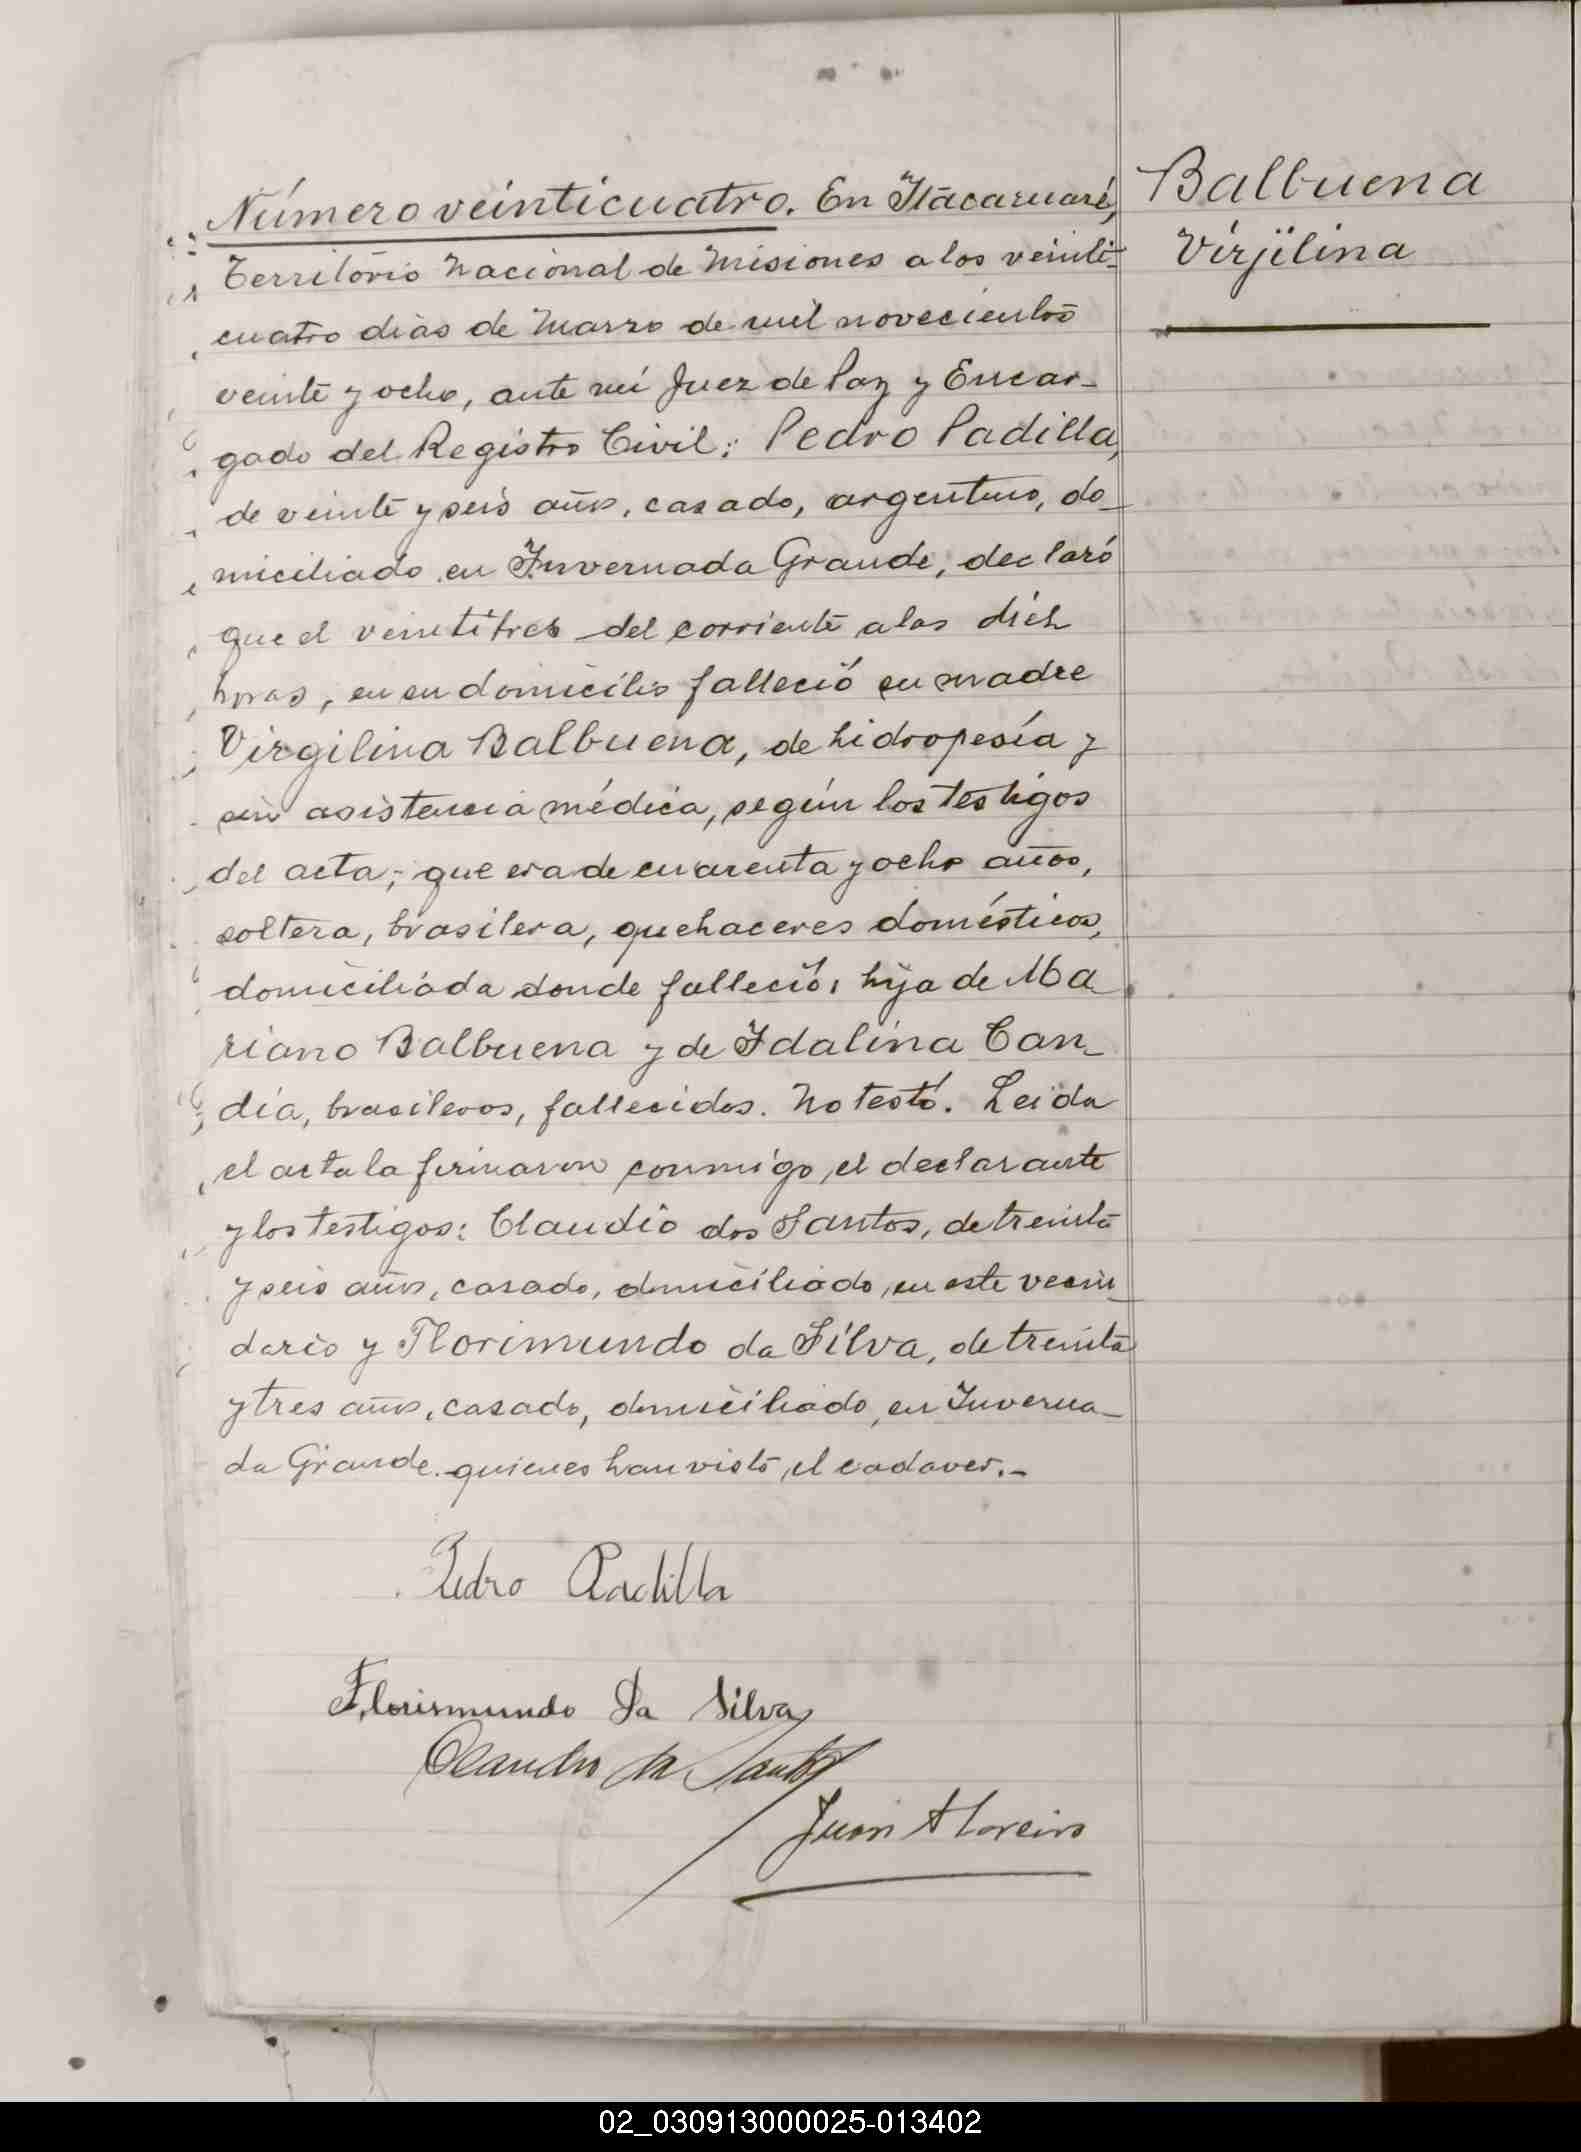 Número veinticuatro. En Itacaruaré,
Territorio Nacional de Misiones a los veinti-
cuatro dias de Marzo de mil novecientos
veinte y ocho, ante mí Juez de Paz y Encar-
gado del Registro Civil; Pedro Padilla,
de veinte y seis años, casado, argentino, do-
miciliado en Invernada Grande, declaró
que el veintitres del corriente a las diéz
horas, en su domicilio falleció su madre
Virgilina Balbuena, de hidropesía y
sin asistencia médica, según los testigos
del acta; que era de cuarenta y ocho años,
soltera, brasilera, quehaceres domésticos,
domiciliada donde falleció; hija de Ma-
riano Balbuena y de Idalina Can-
dia, brasileros, fallecidos. No testó. Leida
el acta la firmaron conmigo, el declarante
y los testigos: Claudio dos Santos, de treinta
y seis años, casado, domiciliado, en este vecin-
dario y Florimundo da Silva, de treinta
y tres años, casado, domiciliado, en Inverna-
da Grande. quienes han visto, el cadaver.-
Pedro Padilla
Florismundo Da Silva
Claudio do Santos
Juan Moreira
Balbuena
Virjilina
02_030913000025-013402